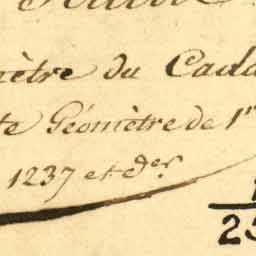 mètre du Cada
te Géomètre de 1er
1237 et der
1
25